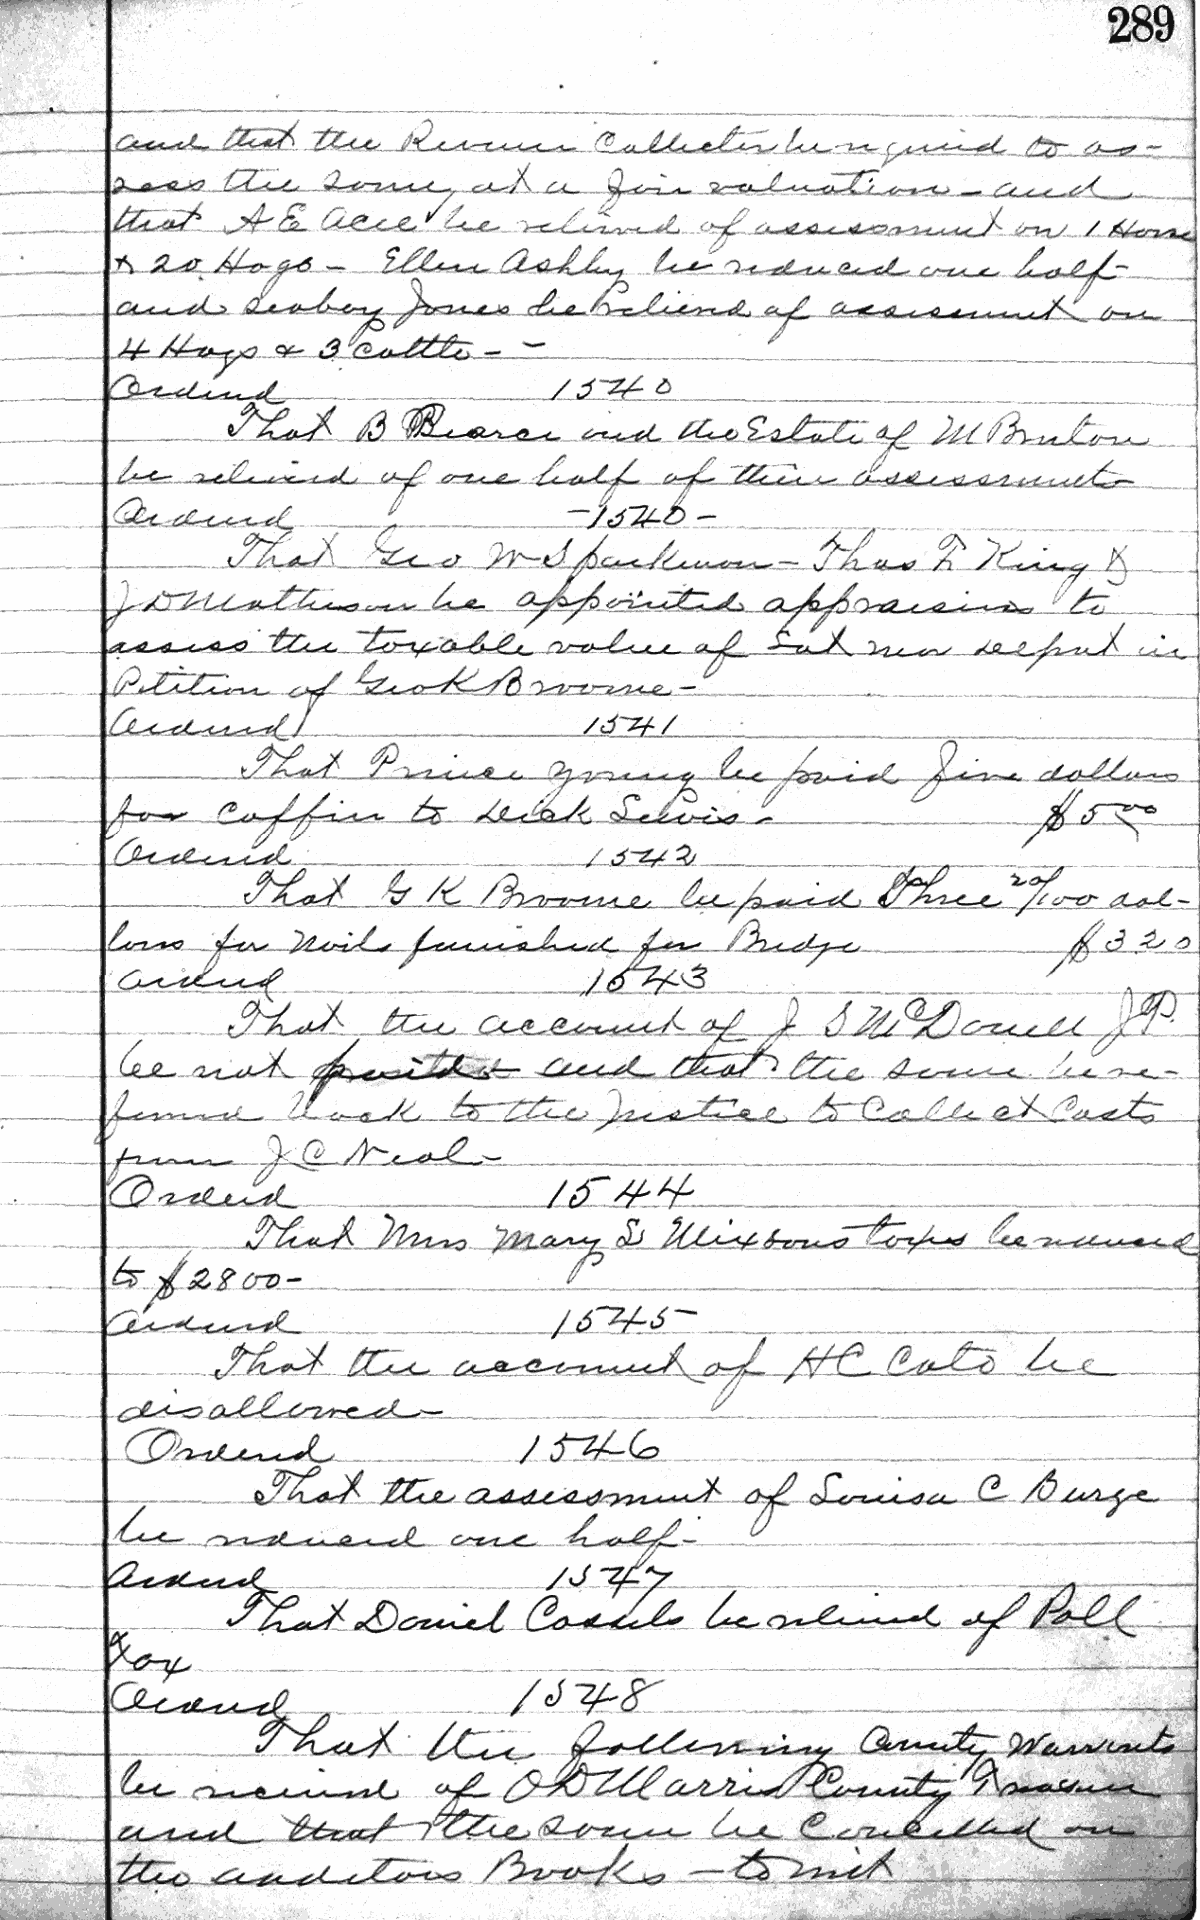 289
and that the Revenue Collector be required to as-
sess the same, at a fair valuation - and
that A E Acee be relieved of assessment on 1 Horse
& 20 Hogs - Ellen Ashby be reduced one half -
and Seaboy Jones be relieved of assessment on
4 Hogs & 3 cattle - -
Ordered 1540
That B Bearce and the Estate of M Bruton
be relieved of one half of their assessment -
Ordered -1540-
That Geo W Sparkman - Thos F King &
J D Matheson be appointed appraisers to
assess the taxable value of Lot near Depot in
Petition of Geo K Broome -
Ordered 1541
That Prince Young be paid five dollars
for coffin to Dick Lewis - $5 00
Ordered 1542
That G K Broome be paid Three 20/100 dol-
lars for Nails furnished for Bridge $3 20
Ordered 1543
That the account of J S McDonell J.P.
be not and that the same be re-
ferred back to the Justice to Collect Costs
from J C Neal -
Ordered 1544
That Mrs Mary S Mixsons taxes be reduced
to $2800 -
Ordered 1545
That the account of H C Cato be
disallowed -
Ordered 1546
That the assessment of Louisa C Burge
be reduced one half -
Ordered 1547
That Daniel Cassels be relieved of Poll
Tax
Ordered 1548
That the following County Warrants
be received of O D Harris County Treasurer
and that the same be Cancelled on
the auditors Books - to wit